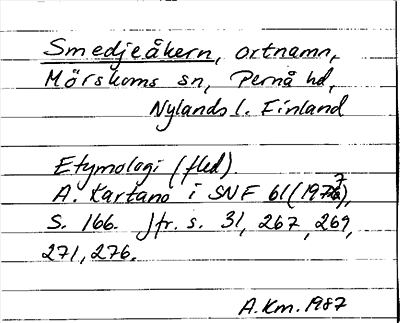 Smedjeåkern, ortnamn,
Mörskoms sn, Pernå hd,
Nylands l. Finland
Etymologi (fled).
A. Kartano i SNF 61 (1977),
s. 166. Jfr. s. 31, 267, 269,
271, 276.
A.Km. 1987